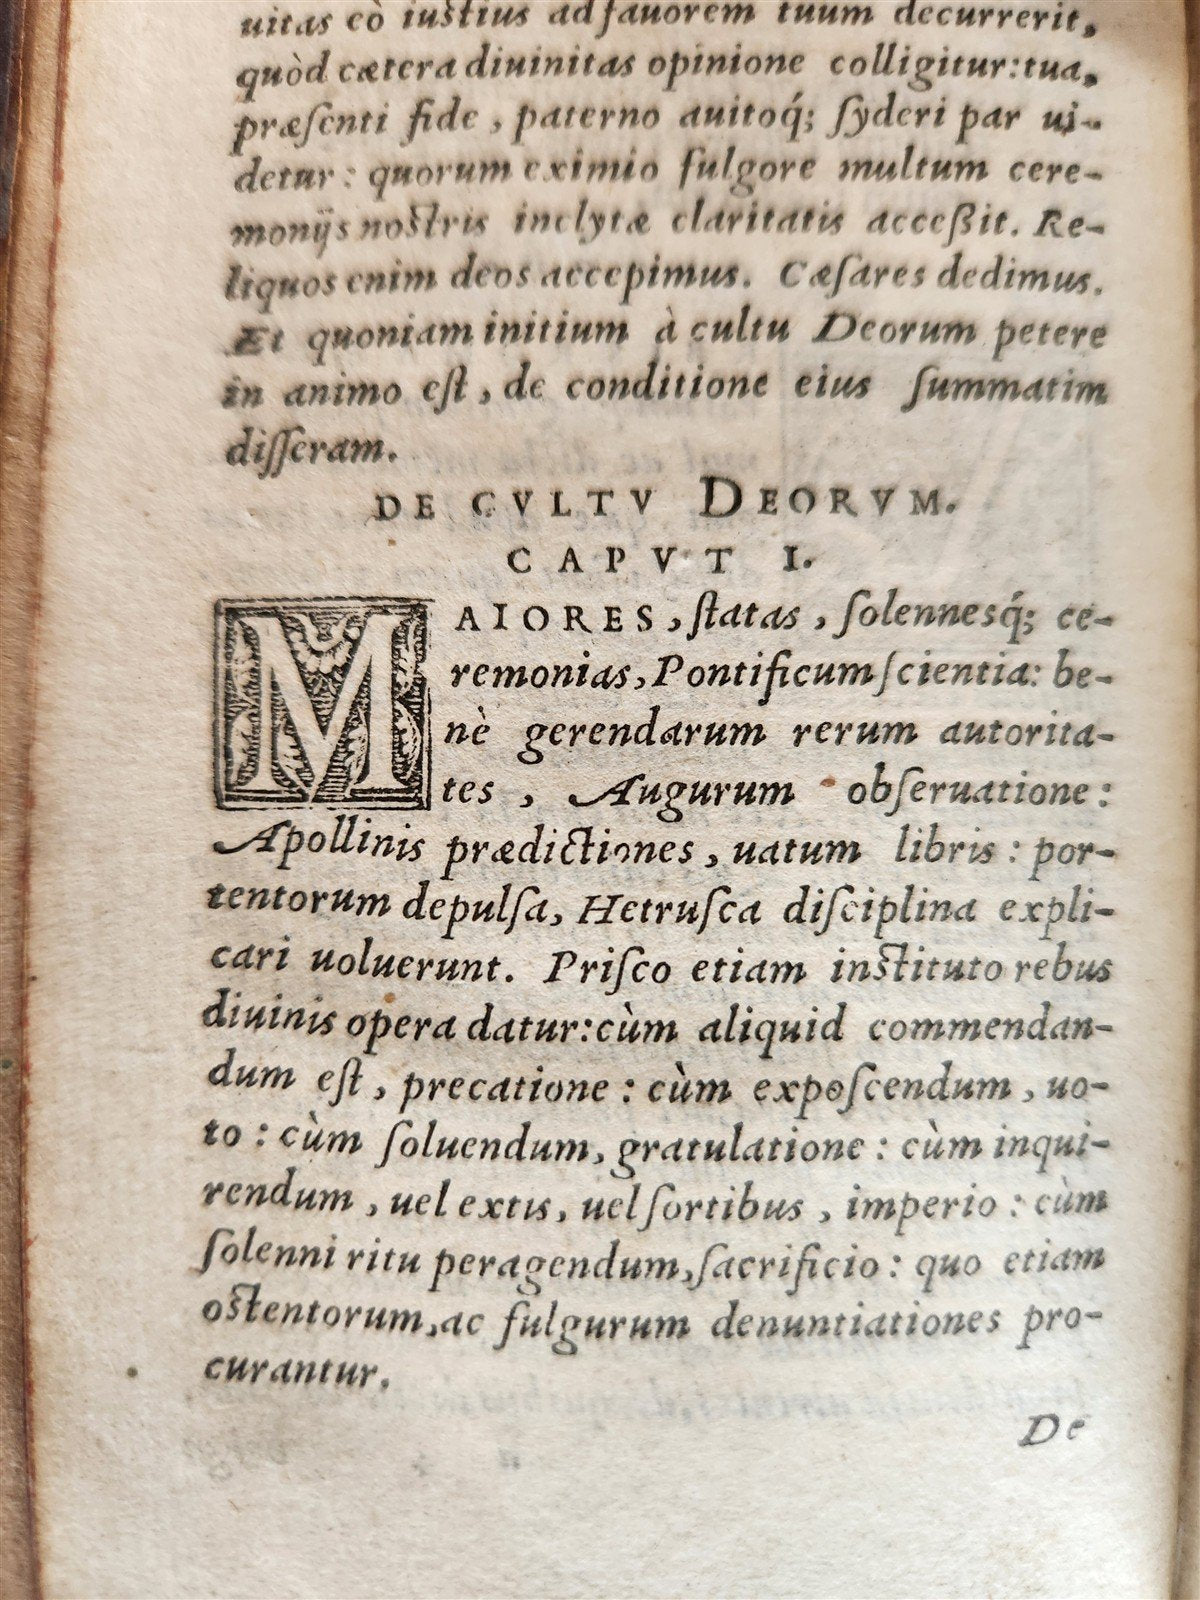 uitas eò iustius ad fauorem tuum decurrerit,
quòd cætera diuinitas opinione colligitur: tua,
præſenti fide, paterno auitoq́; ſyderi par ui-
detur: quorum eximio fulgore multum cere-
monijs nostris inclytæ claritatis acceßit. Re-
liquos enim deos accepimus. Cæſares dedimus.
Et quoniam initium à cultu Deorum petere
in animo eſt, de conditione eius ſummatim
diſſeram.
DE CVLTV DEORVM.
CAPVT I.
MAIORES, ſtatas, ſolennesq́; ce-
remonias, Pontificum ſcientia: be-
nè gerendarum rerum autorita-
tes, Augurum obſeruatione:
Apollinis prædictiones, uatum libris: por-
tentorum depulſa, Hetruſca diſciplina expli-
cari uoluerunt. Priſco etiam instituto rebus
diuinis opera datur: cùm aliquid commendan-
dum eſt, precatione: cùm expoſcendum, uo-
to: cùm ſoluendum, gratulatione: cùm inqui-
rendum, uel extis, uel ſortibus, imperio: cùm
ſolenni ritu peragendum, ſacrificio: quo etiam
ostentorum, ac fulgurum denuntiationes pro-
curantur.
De